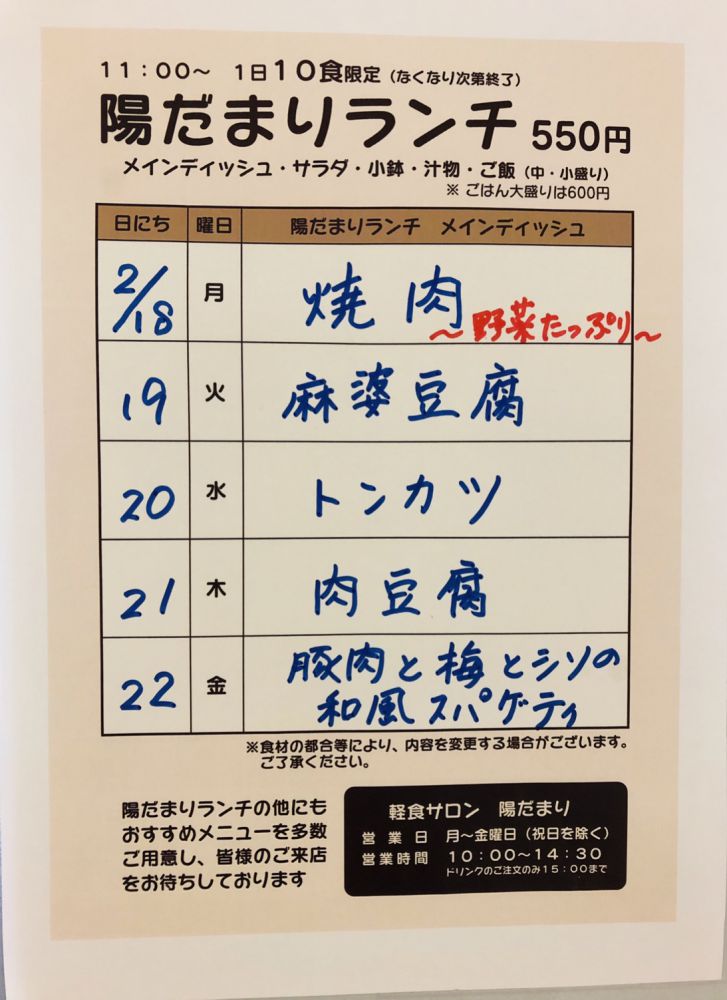 11：00〜 1日10食限定（なくなり次第終了）
陽だまりランチ 550円
メインディッシュ・サラダ・小鉢・汁物・ご飯（中・小盛り）
※ ごはん大盛りは600円
日にち 曜日 陽だまりランチ メインディッシュ
2/18 月 焼肉
〜野菜たっぷり〜
19 火 麻婆豆腐
20 水 トンカツ
21 木 肉豆腐
22 金 豚肉と梅とシソの
和風スパゲティ
※食材の都合等により、内容を変更する場合がございます。
ご了承ください。
陽だまりランチの他にも
おすすめメニューを多数
ご用意し、皆様のご来店
をお待ちしております
軽食サロン 陽だまり
営業日 月〜金曜日（祝日を除く）
営業時間 10：00〜14：30
ドリンクのご注文のみ15：00まで